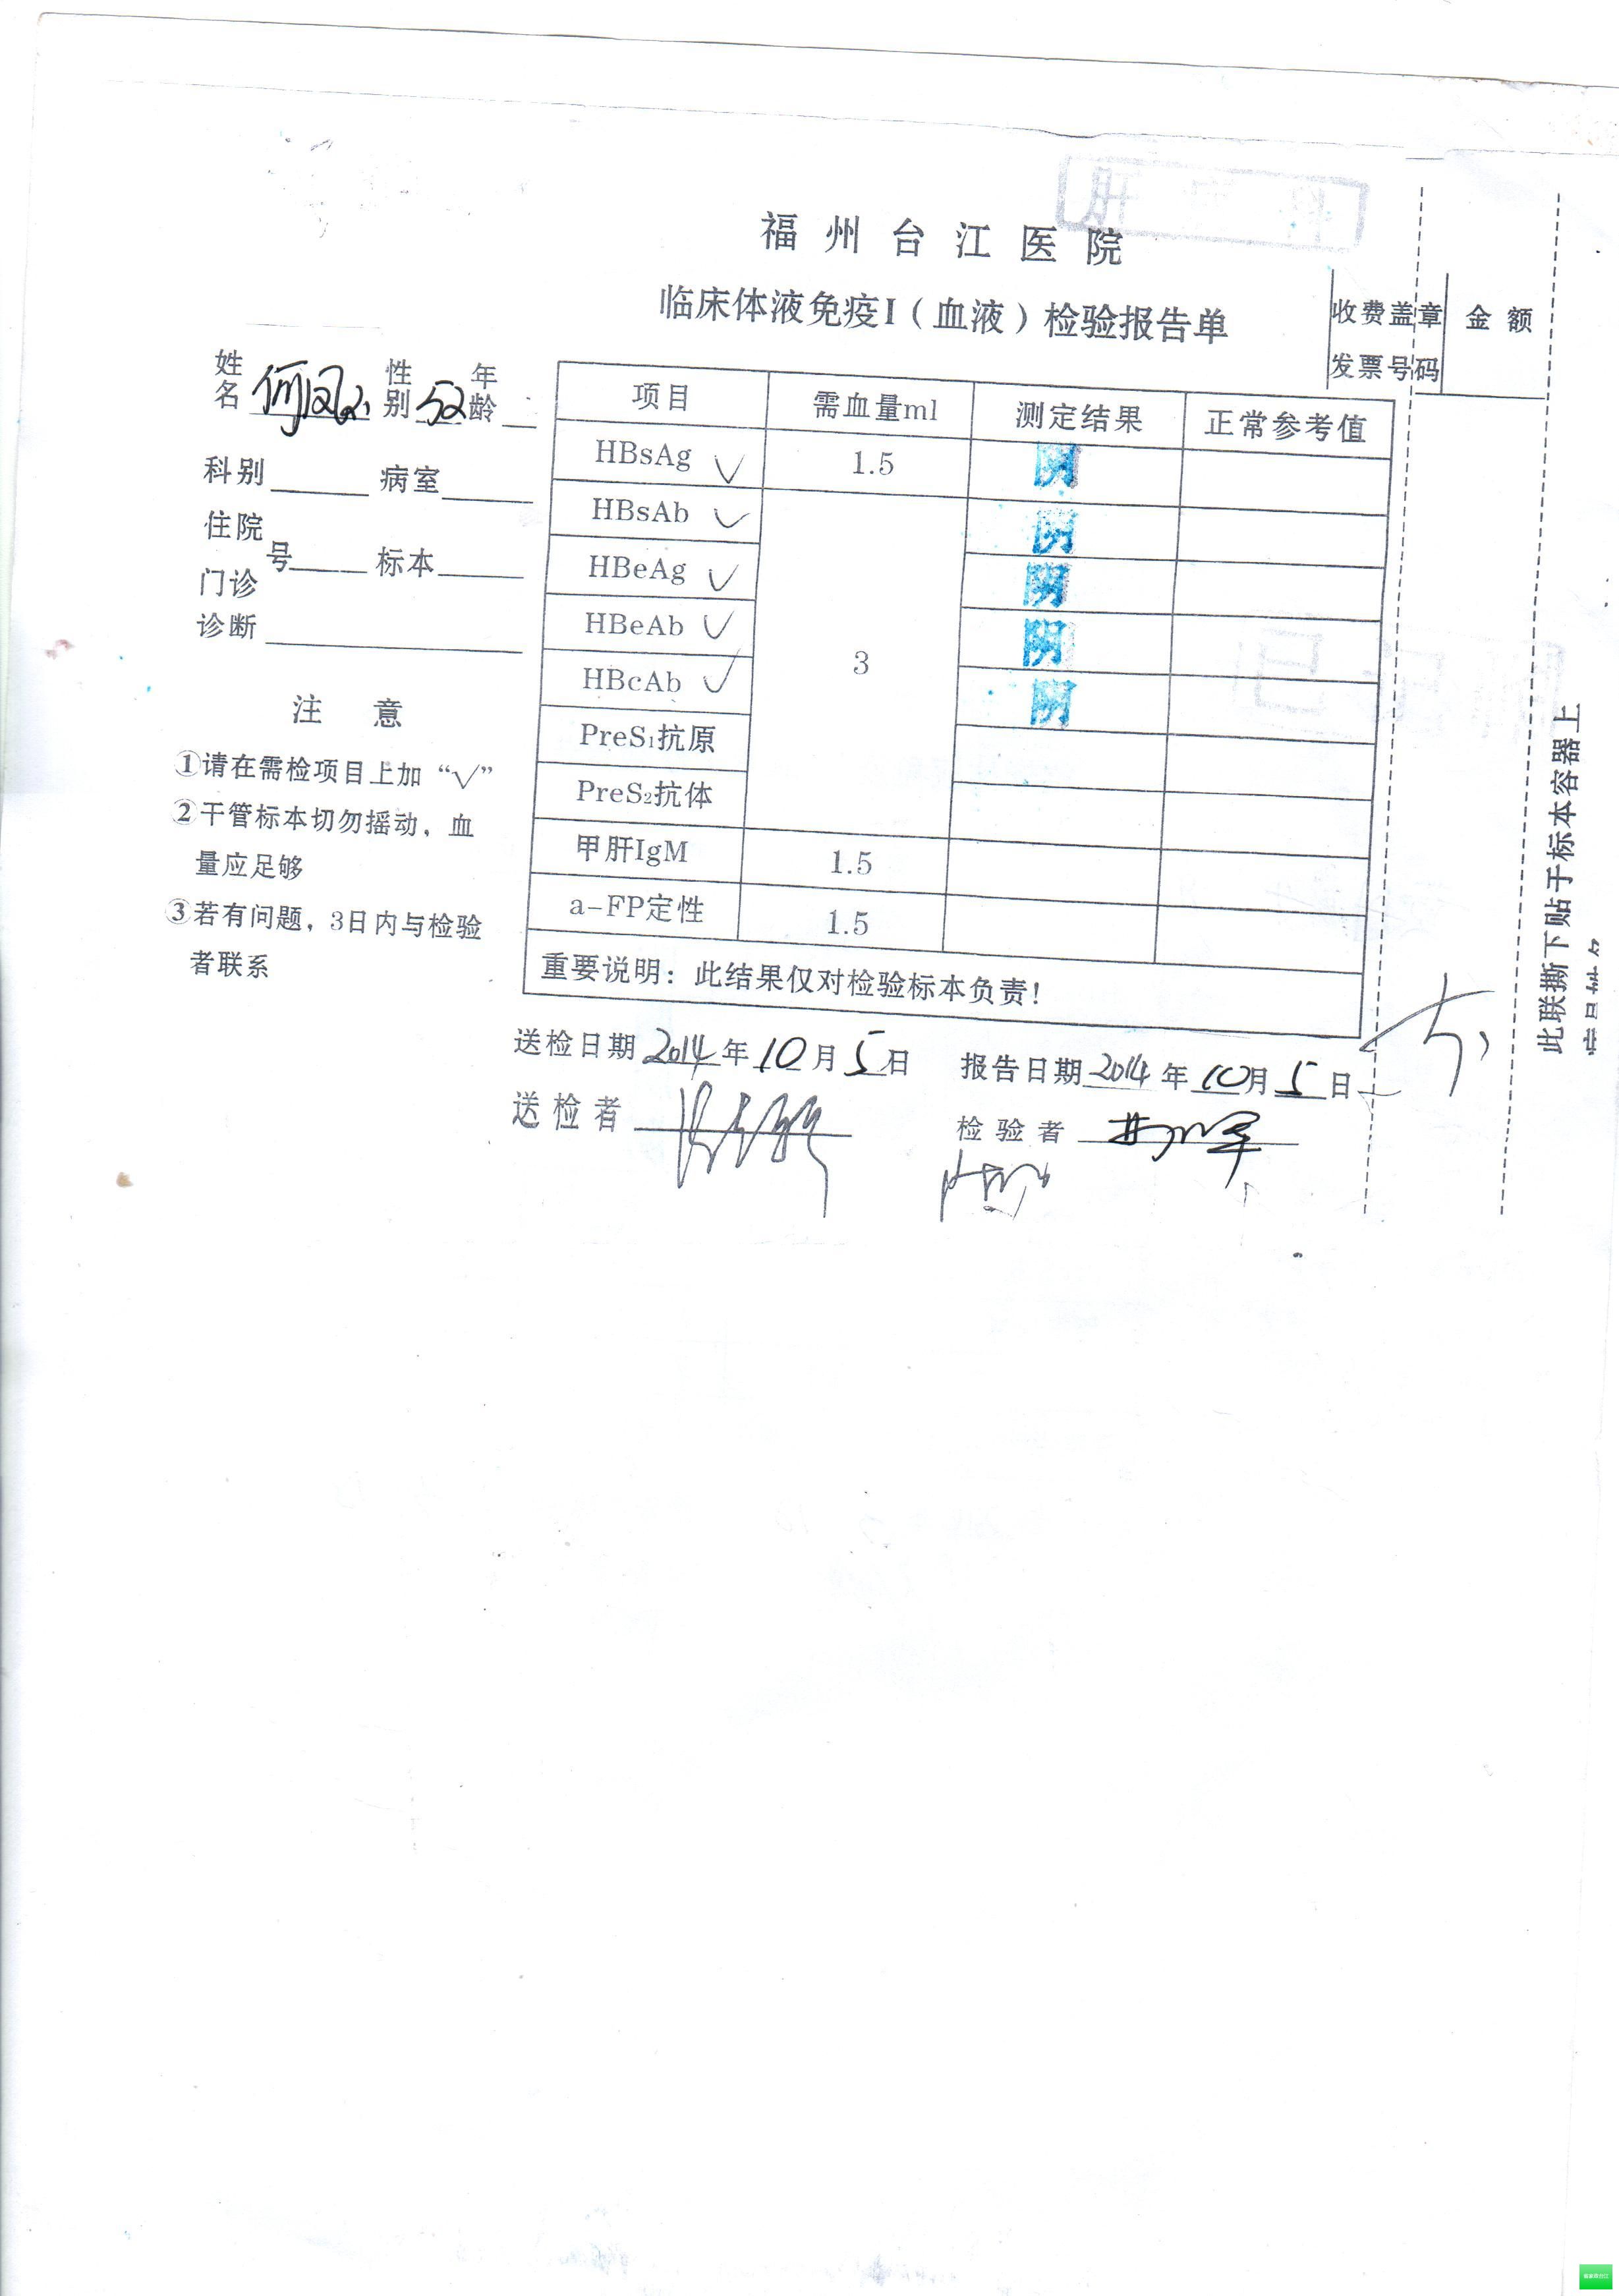 福州台江医院
临床体液免疫I（血液）检验报告单
收费盖章 金额
发票号码
姓名 性别 52 年龄
科别 病室
住院
号 标本
门诊
诊断
注 意
①请在需检项目上加“√”
②干管标本切勿摇动，血
量应足够
③若有问题，3日内与检验
者联系
项目 需血量ml 测定结果 正常参考值
HBsAg √ 1.5 阴
HBsAb √ 3 阴
HBeAg √ 阴
HBeAb √ 阴
HBcAb √ 阴
PreS₁抗原
PreS₂抗体
甲肝IgM 1.5
a-FP定性 1.5
重要说明：此结果仅对检验标本负责！
送检日期 2014 年 10 月 5 日 报告日期 2014 年 10 月 5 日
送检者 检验者
此联撕下贴于标本容器上